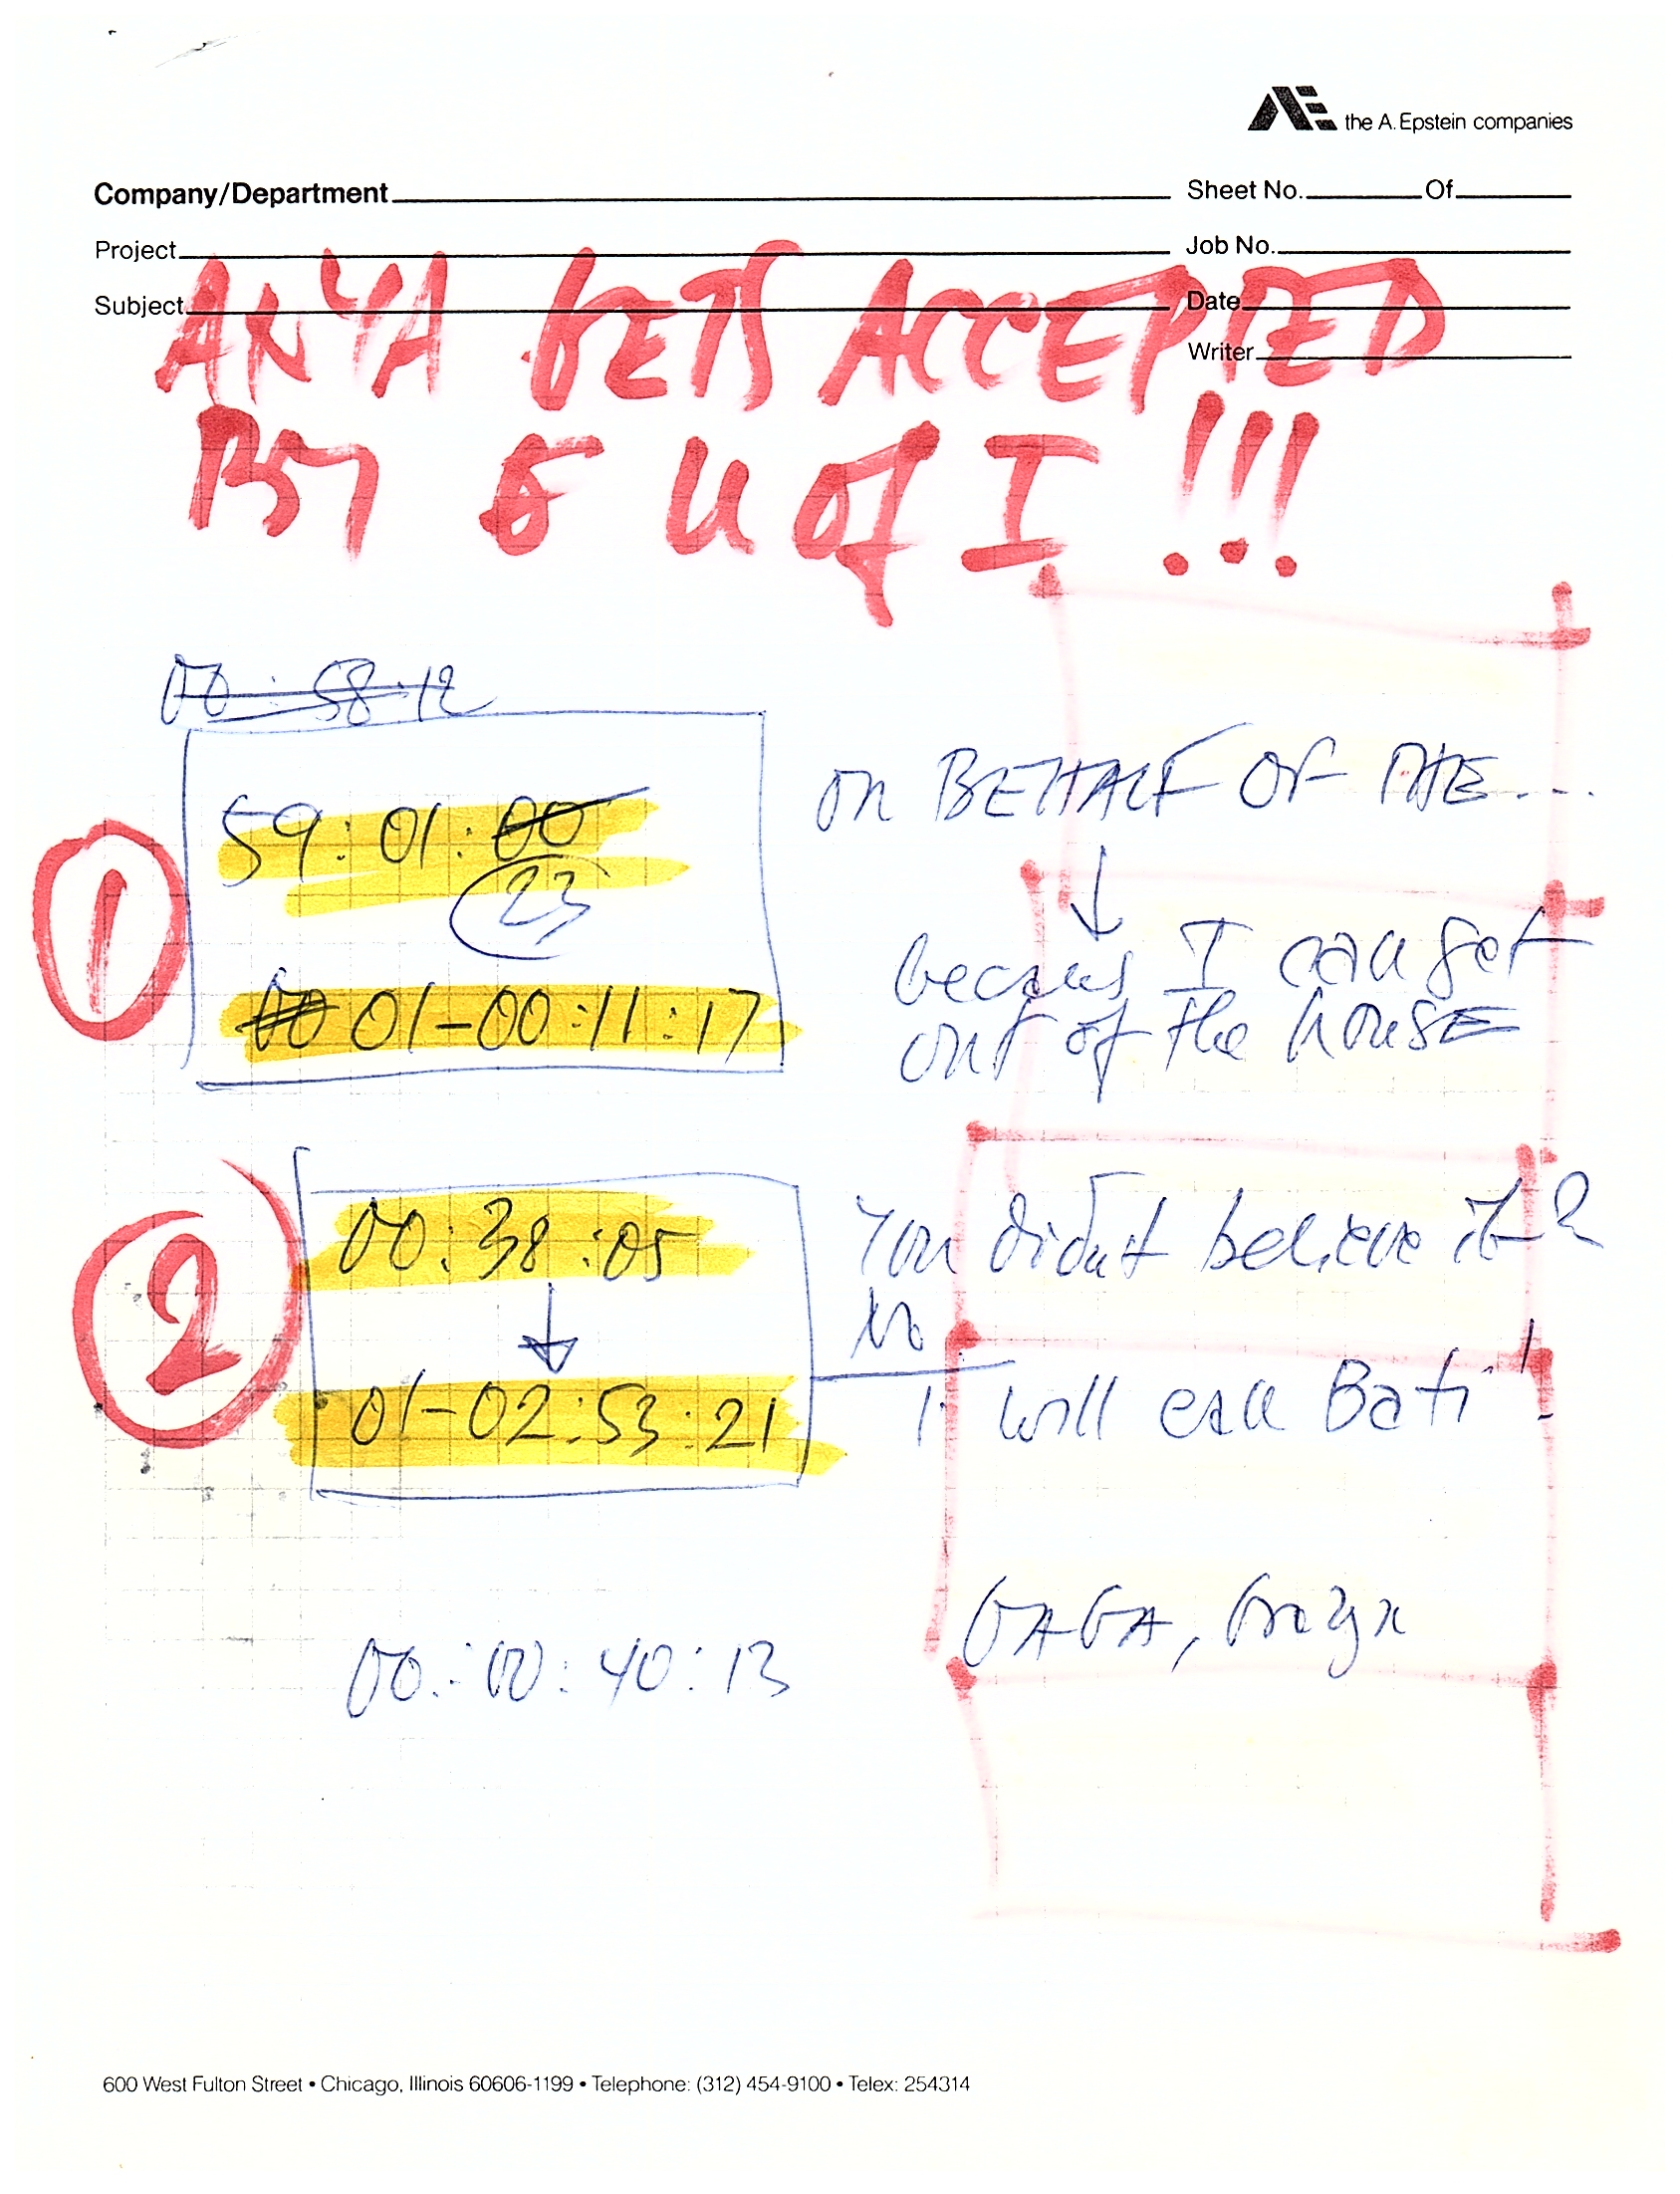 the A. Epstein companies
Company/Department Sheet No. Of
Project Job No.
Subject Date
Writer
ANYA GETS ACCEPTED
BY U of I !!!
00:58:12
59:01:00
23
1
00 01-00:11:17
ON BEHALF OF THE...
because I can get
out of the house
2
00:38:05
01-02:53:21
You didn't believe it?
No
I will call Bati!
GAGA,
00:00:40:13
600 West Fulton Street • Chicago, Illinois 60606-1199 • Telephone: (312) 454-9100 • Telex: 254314